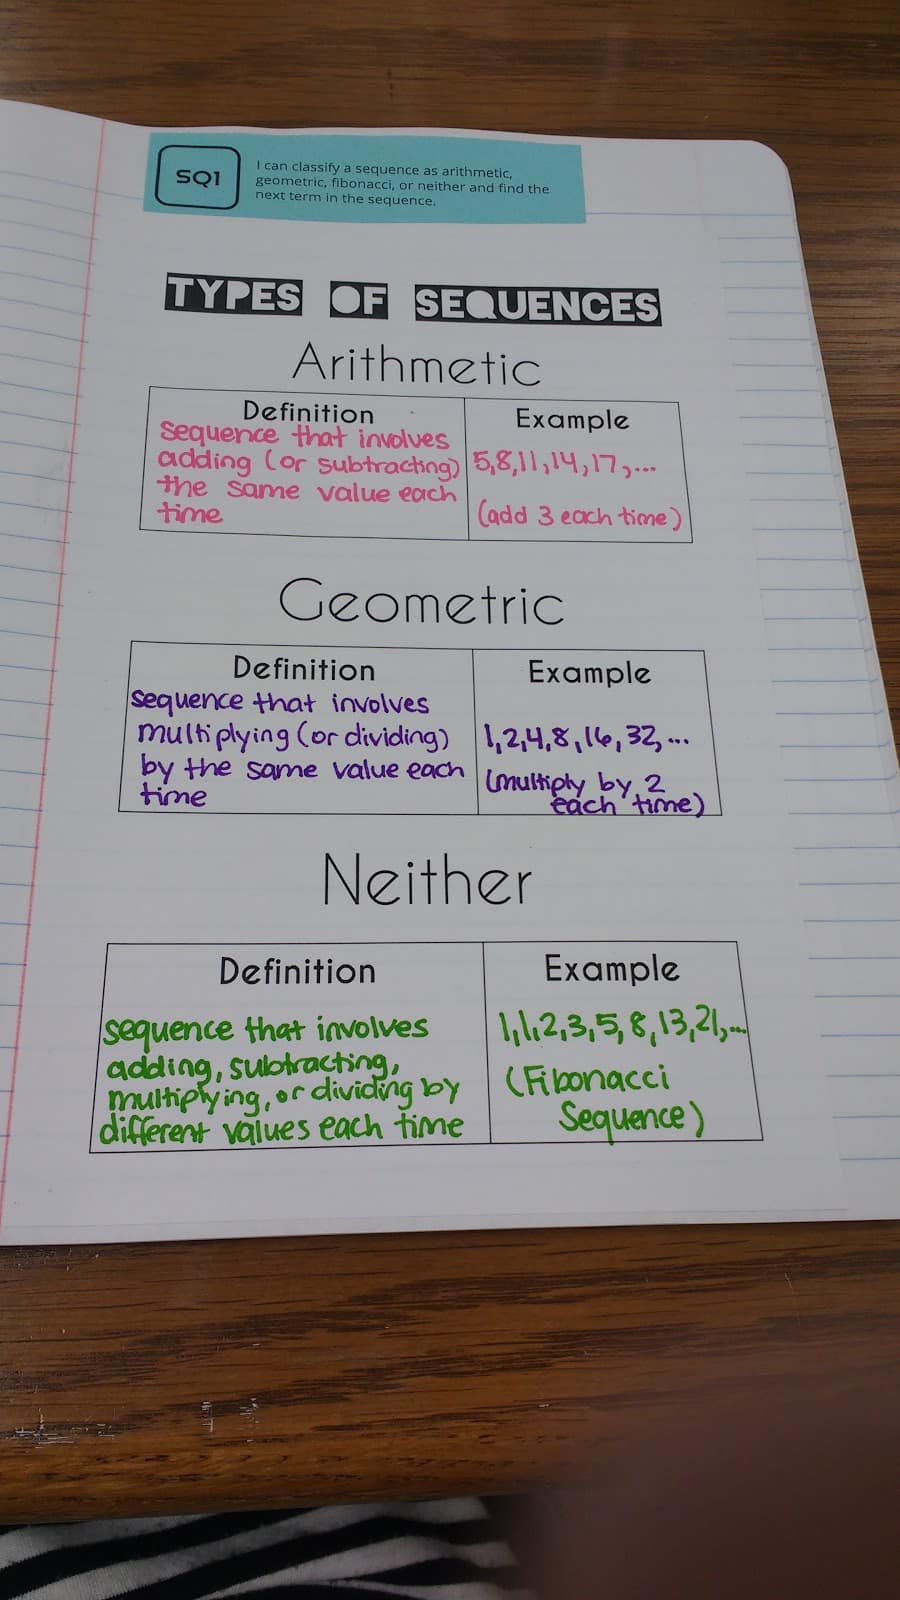 SQ1
I can classify a sequence as arithmetic,
geometric, fibonacci, or neither and find the
next term in the sequence.
TYPES OF SEQUENCES
Arithmetic
Definition
sequence that involves
adding (or subtracting)
the same value each
time
Example
5,8,11,14,17,...
(add 3 each time)
Geometric
Definition
sequence that involves
multiplying (or dividing)
by the same value each
time
Example
1,2,4,8,16,32,...
(multiply by 2
each time)
Neither
Definition
sequence that involves
adding, subtracting,
multiplying, or dividing by
different values each time
Example
1,1,2,3,5,8,13,21,...
(Fibonacci
Sequence)